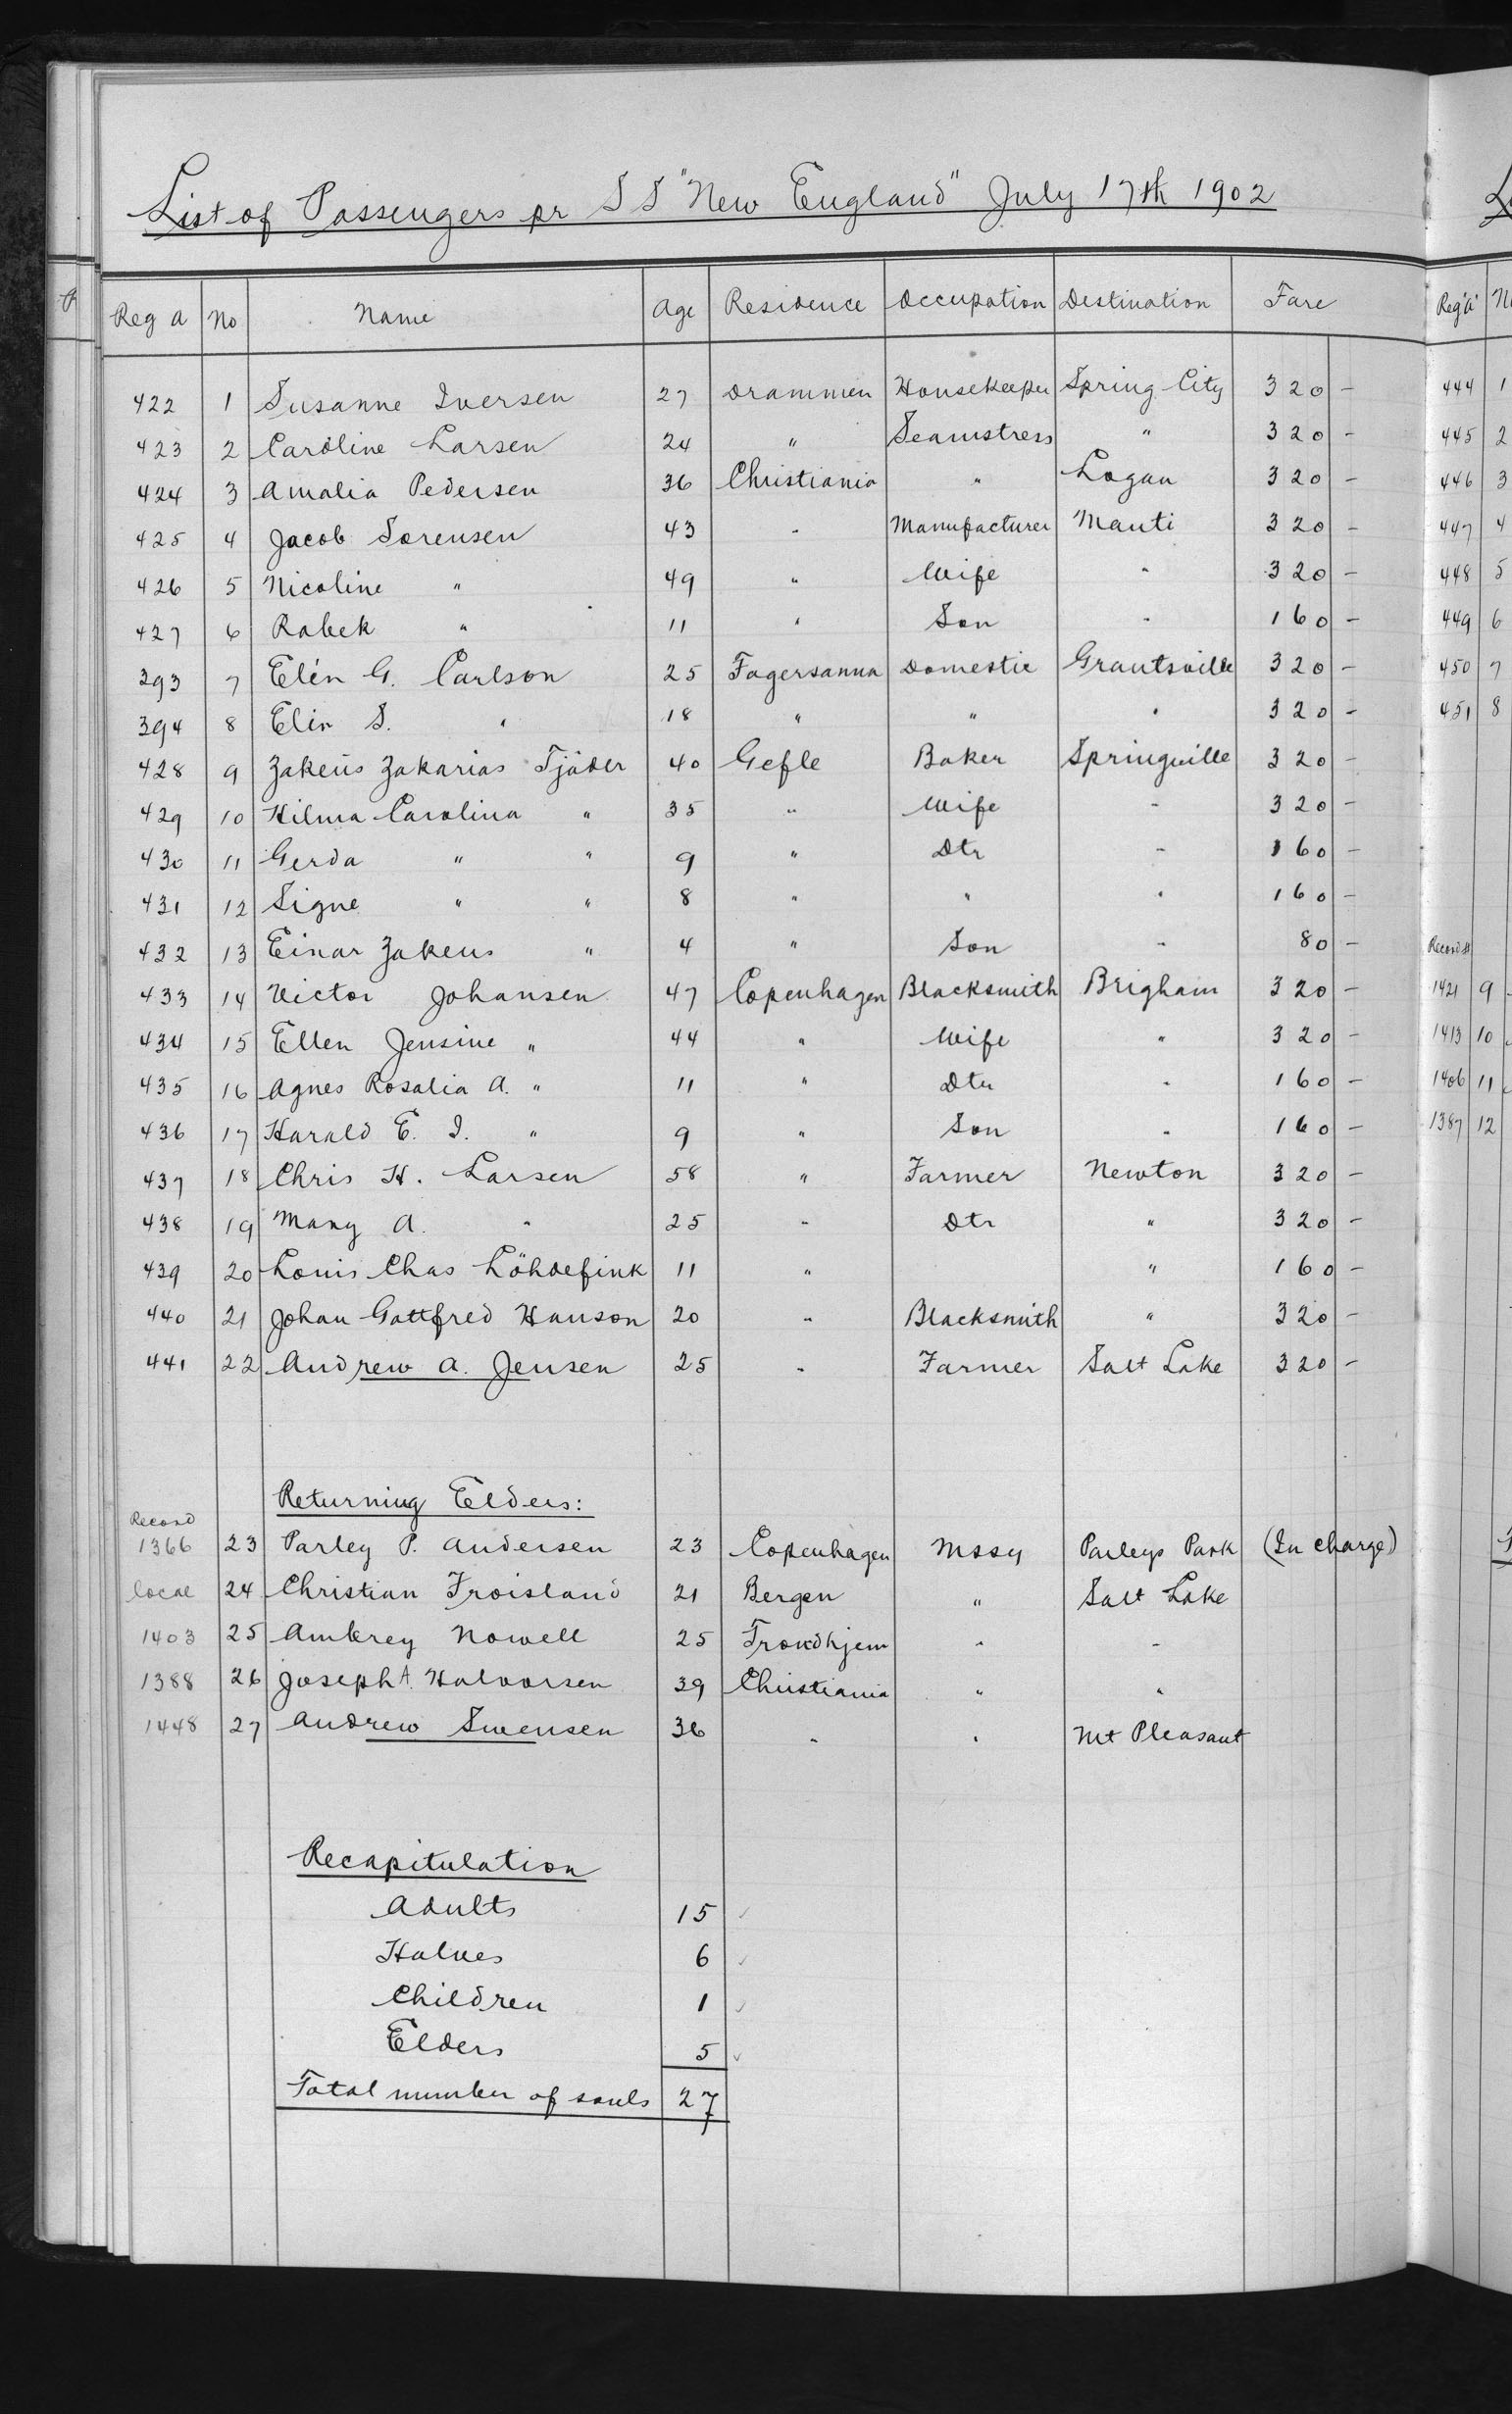 List of Passengers pr S S "New England" July 17th 1902
Reg A No Name Age Residence Occupation Destination Fare
422 1 Susanne Iversen 27 Drammen Housekeeper Spring City 320 -
423 2 Caroline Larsen 24 " Seamstress " 320 -
424 3 Amalia Pedersen 36 Christiania " Logan 320 -
425 4 Jacob Sorensen 43 " Manufacturer Manti 320 -
426 5 Nicoline " 49 " Wife " 320 -
427 6 Rabek " 11 " Son " 160 -
393 7 Elén G. Carlson 25 Fagersanna Domestic Grantsville 320 -
394 8 Elin S. " 18 " " " 320 -
428 9 Zakeüs Zakarias Tjäder 40 Gefle Baker Springville 320 -
429 10 Hilma Carolina " 35 " Wife " 320 -
430 11 Gerda " " 9 " Dtr " 160 -
431 12 Signe " " 8 " " " 160 -
432 13 Einar Zakeus " 4 " Son " 80 -
433 14 Victor Johansen 47 Copenhagen Blacksmith Brigham 320 -
434 15 Ellen Jensine " 44 " Wife " 320 -
435 16 Agnes Rosalia A. " 11 " Dtr " 160 -
436 17 Harald E. I. " 9 " Son " 160 -
437 18 Chris H. Larsen 58 " Farmer Newton 320 -
438 19 Mary A. " 25 " Dtr " 320 -
439 20 Louis Chas Löhdefink 11 " " 160 -
440 21 Johan Gottfred Hanson 20 " Blacksmith " 320 -
441 22 Andrew A. Jensen 25 " Farmer Salt Lake 320 -
Returning Elders:
Record
1366 23 Parley P. Andersen 23 Copenhagen Mssy Parleys Park (In charge)
local 24 Christian Froisland 21 Bergen " Salt Lake
1403 25 Ambrey Nowell 25 Trondhjem " "
1388 26 Joseph A. Halvorsen 39 Christiania " "
1448 27 Andrew Swensen 36 " " Mt Pleasant
Recapitulation
Adults 15 ✓
Halves 6 ✓
Children 1 ✓
Elders 5 ✓
Total number of souls 27
Reg "A"
444 1
445 2
446 3
447 4
448 5
449 6
450 7
451 8
Record
1421 9
1413 10
1406 11
1387 12